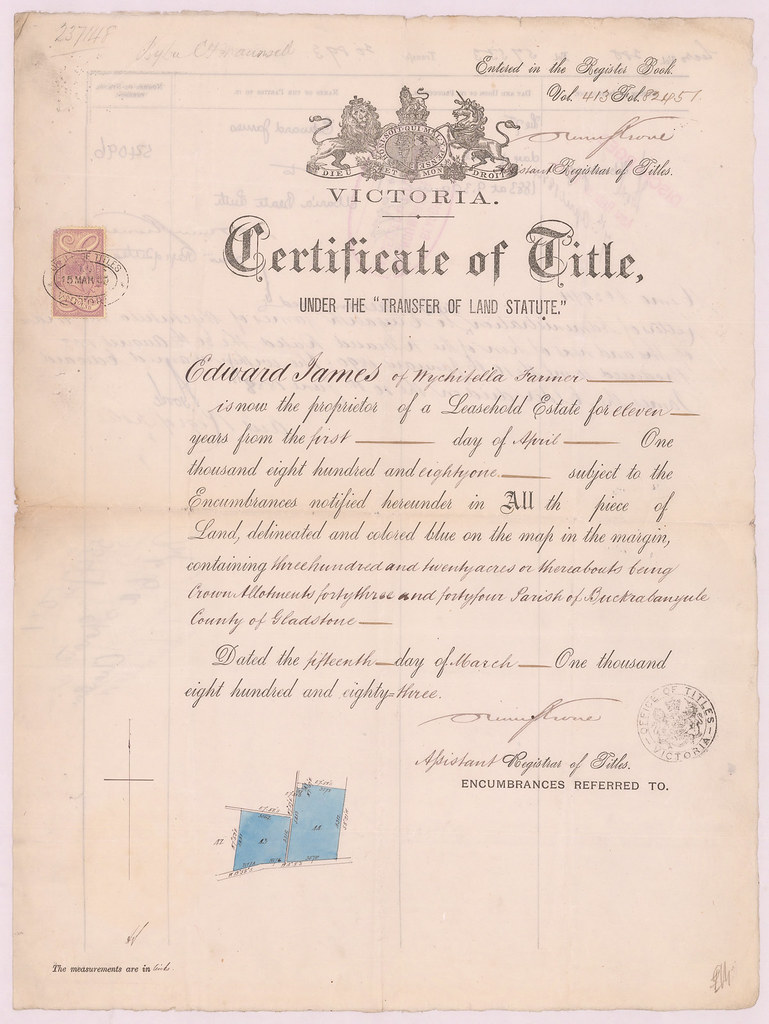 237148
Entered in the Register Book.
Vol. 413 Fol. 82451
Assistant Registrar of Titles.
HONI SOIT QUI MAL Y PENSE
DIEU ET MON DROIT
VICTORIA.
Certificate of Title,
UNDER THE "TRANSFER OF LAND STATUTE."
OFFICE OF TITLES
15 MAR 83
VICTORIA
Edward James of Wychitella Farmer
is now the proprietor of a Leasehold Estate for eleven
years from the first day of April One
thousand eight hundred and eightyone subject to the
Encumbrances notified hereunder in All th piece of
Land, delineated and colored blue on the map in the margin,
containing three hundred and twenty acres or thereabouts being
Crown Allotments fortythree and fortyfour Parish of Buckrabanyule
County of Gladstone
Dated the fifteenth day of March One thousand
eight hundred and eighty-three.
OFFICE OF TITLES
VICTORIA
Assistant Registrar of Titles.
ENCUMBRANCES REFERRED TO.
The measurements are in links